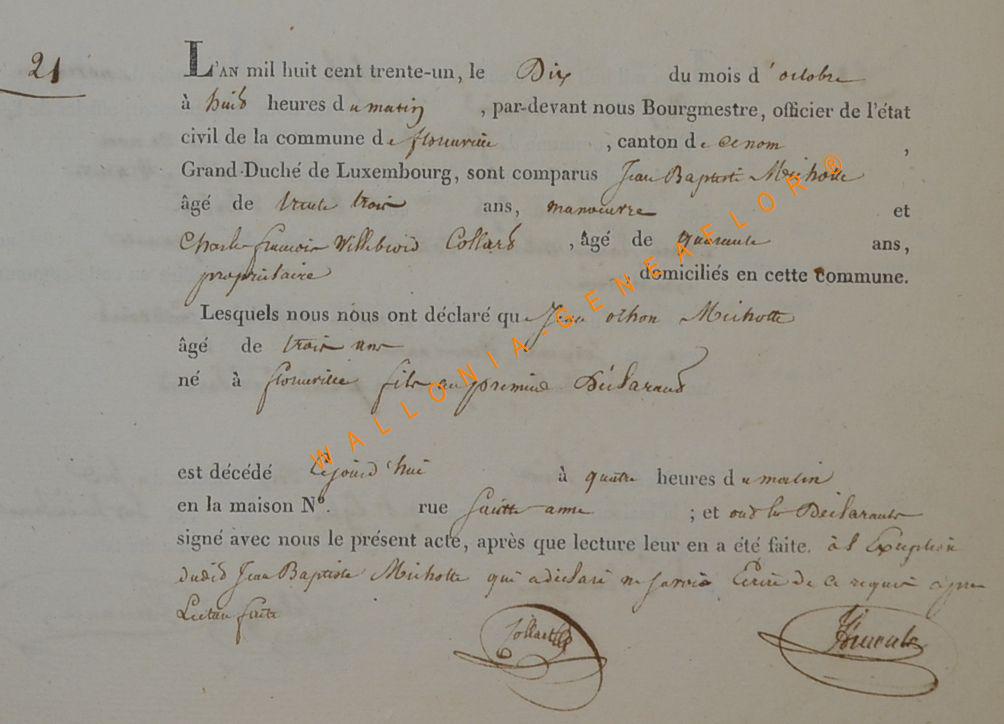 21
L'AN mil huit cent trente-un, le Dix du mois d'octobre
à huit heures du matin, par-devant nous Bourgmestre, officier de l'état
civil de la commune de florenville, canton de ce nom,
Grand-Duché de Luxembourg, sont comparus Jean Baptiste Michotte
âgé de trente trois ans, manoeuvre et
Charles françois Willibrord Collard, âgé de quarante ans,
propriétaire, domiciliés en cette commune.
Lesquels nous nous ont déclaré que Jean othon Michotte
âgé de trois ans
né à florenville fils au premier Déclarant
est décédé cejourd'hui à quatre heures du matin
en la maison N°. rue Sainte anne; et ont les Déclarants
signé avec nous le présent acte, après que lecture leur en a été faite. à l'Exception
dudit Jean Baptiste Michotte qui a déclaré ne savoir Ecrire de ce requis après
Lecture faite
Collard
WALLONIA-GENEAFLOR®